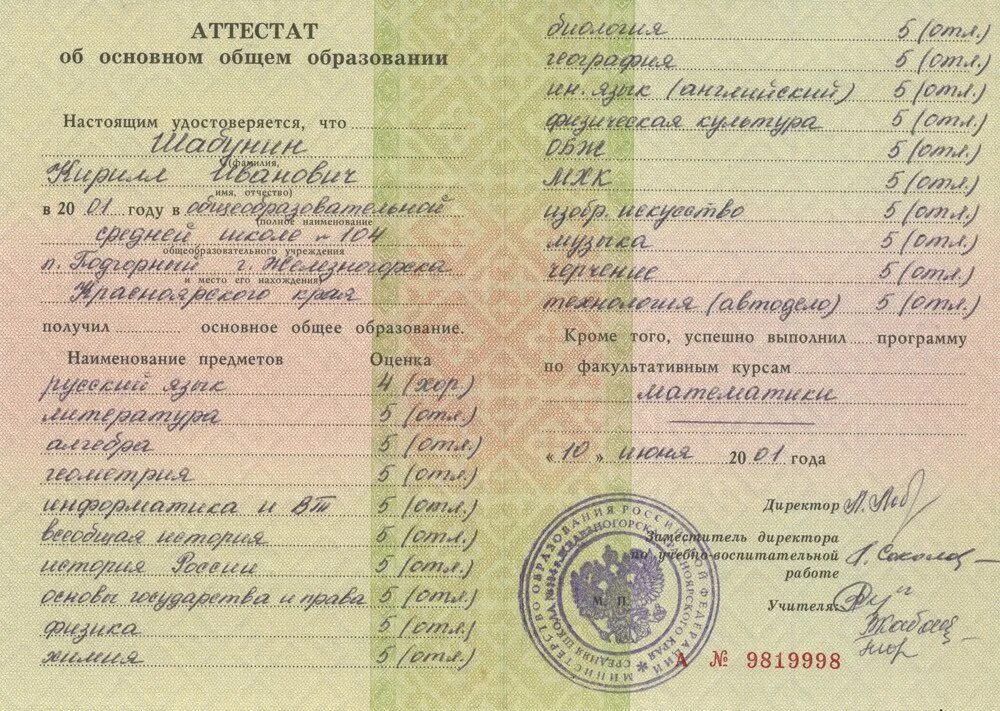 АТТЕСТАТ
об основном общем образовании
Настоящим удостоверяется, что
Шабунин
(фамилия,
Кирилл Иванович
имя, отчество)
в 2001 году в общеобразовательной
(полное наименование
средней школе № 104
общеобразовательного учреждения
п. Подгорный г. Железногорска
и место его нахождения)
Красноярского края
получил основное общее образование.
Наименование предметов Оценка
русский язык 4 (хор)
литература 5 (отл.)
алгебра 5 (отл.)
геометрия 5 (отл.)
информатика и ВТ 5 (отл.)
всеобщая история 5 (отл.)
история России 5 (отл.)
основы государства и права 5 (отл.)
физика 5 (отл.)
химия 5 (отл.)
биология 5 (отл.)
география 5 (отл.)
ин. язык (английский) 5 (отл.)
физическая культура 5 (отл.)
ОБЖ 5 (отл.)
МХК 5 (отл.)
изобр. искусство 5 (отл.)
музыка 5 (отл.)
черчение 5 (отл.)
технология (автодело) 5 (отл.)
Кроме того, успешно выполнил программу
по факультативным курсам
математики
«10» июня 2001 года
Директор
Заместитель директора
по учебно-воспитательной
работе
Учителя:
М. П.
МИНИСТЕРСТВО ОБРАЗОВАНИЯ РОССИЙСКОЙ ФЕДЕРАЦИИ
СРЕДНЯЯ ШКОЛА КРАСНОЯРСКОГО КРАЯ
А № 9819998